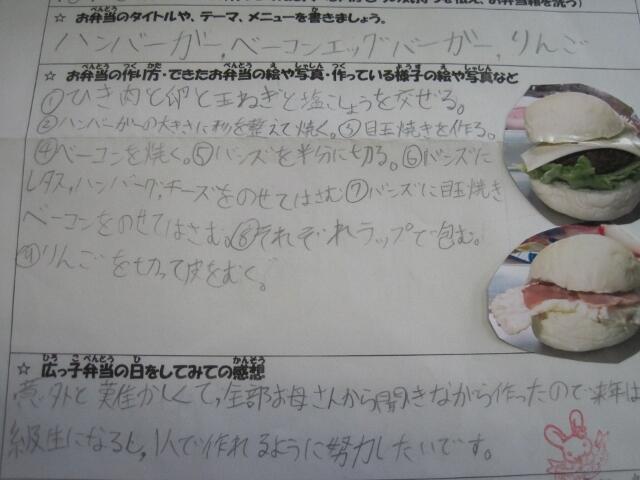 ☆ お弁当のタイトルや、テーマ、メニューを書きましょう。
ハンバーガー,ベーコンエッグバーガー,りんご
☆ お弁当の作り方・できたお弁当の絵や写真・作っている様子の絵や写真など
①ひき肉と卵と玉ねぎと塩こしょうを交ぜる。
②ハンバーガーの大きさに形を整えて焼く。③目玉焼きを作る。
④ベーコンを焼く。⑤バンズを半分に切る。⑥バンズに
レタス,ハンバーグ,チーズをのせてはさむ⑦バンズに目玉焼き
ベーコンをのせてはさむ。⑧それぞれラップで包む。
⑨りんごを切って皮をむく。
☆ 広っ子弁当の日をしてみての感想
意外と難かしくて,全部お母さんから聞きながら作ったので来年は
級生になるし,1人で作れるように努力したいです。